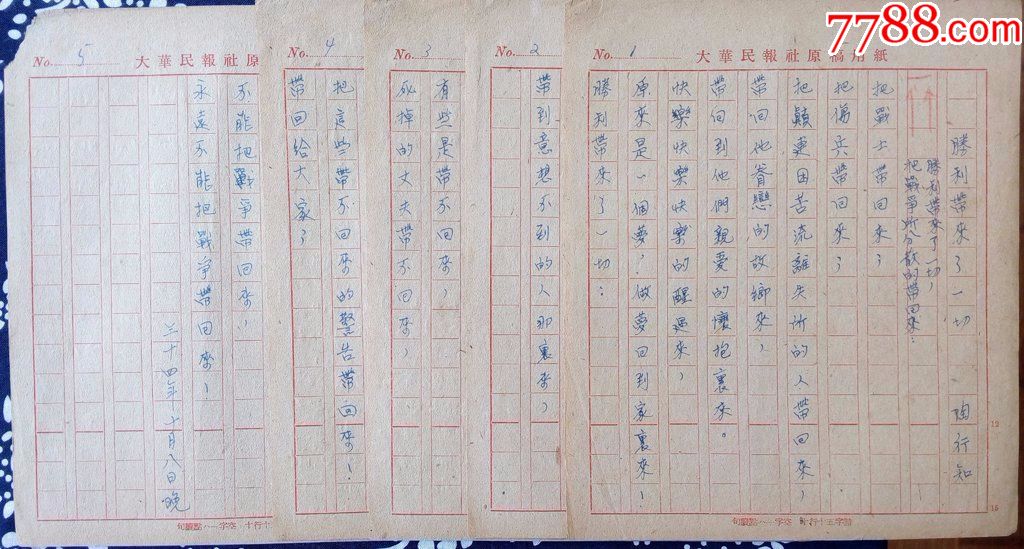 7788.com
No. 1
大華民報社原稿用紙
勝利帶來了一切 陶行知
勝利帶來了一切，
把戰爭所分散的帶回來：
把戰士帶回來，
把傷兵帶回來，
把顛連困苦流離失所的人帶回來，
帶回他眷戀的故鄉來，
帶回到他們親愛的懷抱裏來。
快樂快樂快樂的醒過來，
原來是一個夢！做夢回到家裏來！
勝利帶來了一切：
12
15
No. 2
帶到意想不到的人那裏來，
No. 3
有些是帶不回來，
死掉的丈夫帶不回來，
No. 4
把這些帶不回來的警告帶回來！
帶回給大家，
No. 5
大華民報社原
不能把戰爭帶回來，
永遠不能把戰爭帶回來！
三十四年十月八日晚